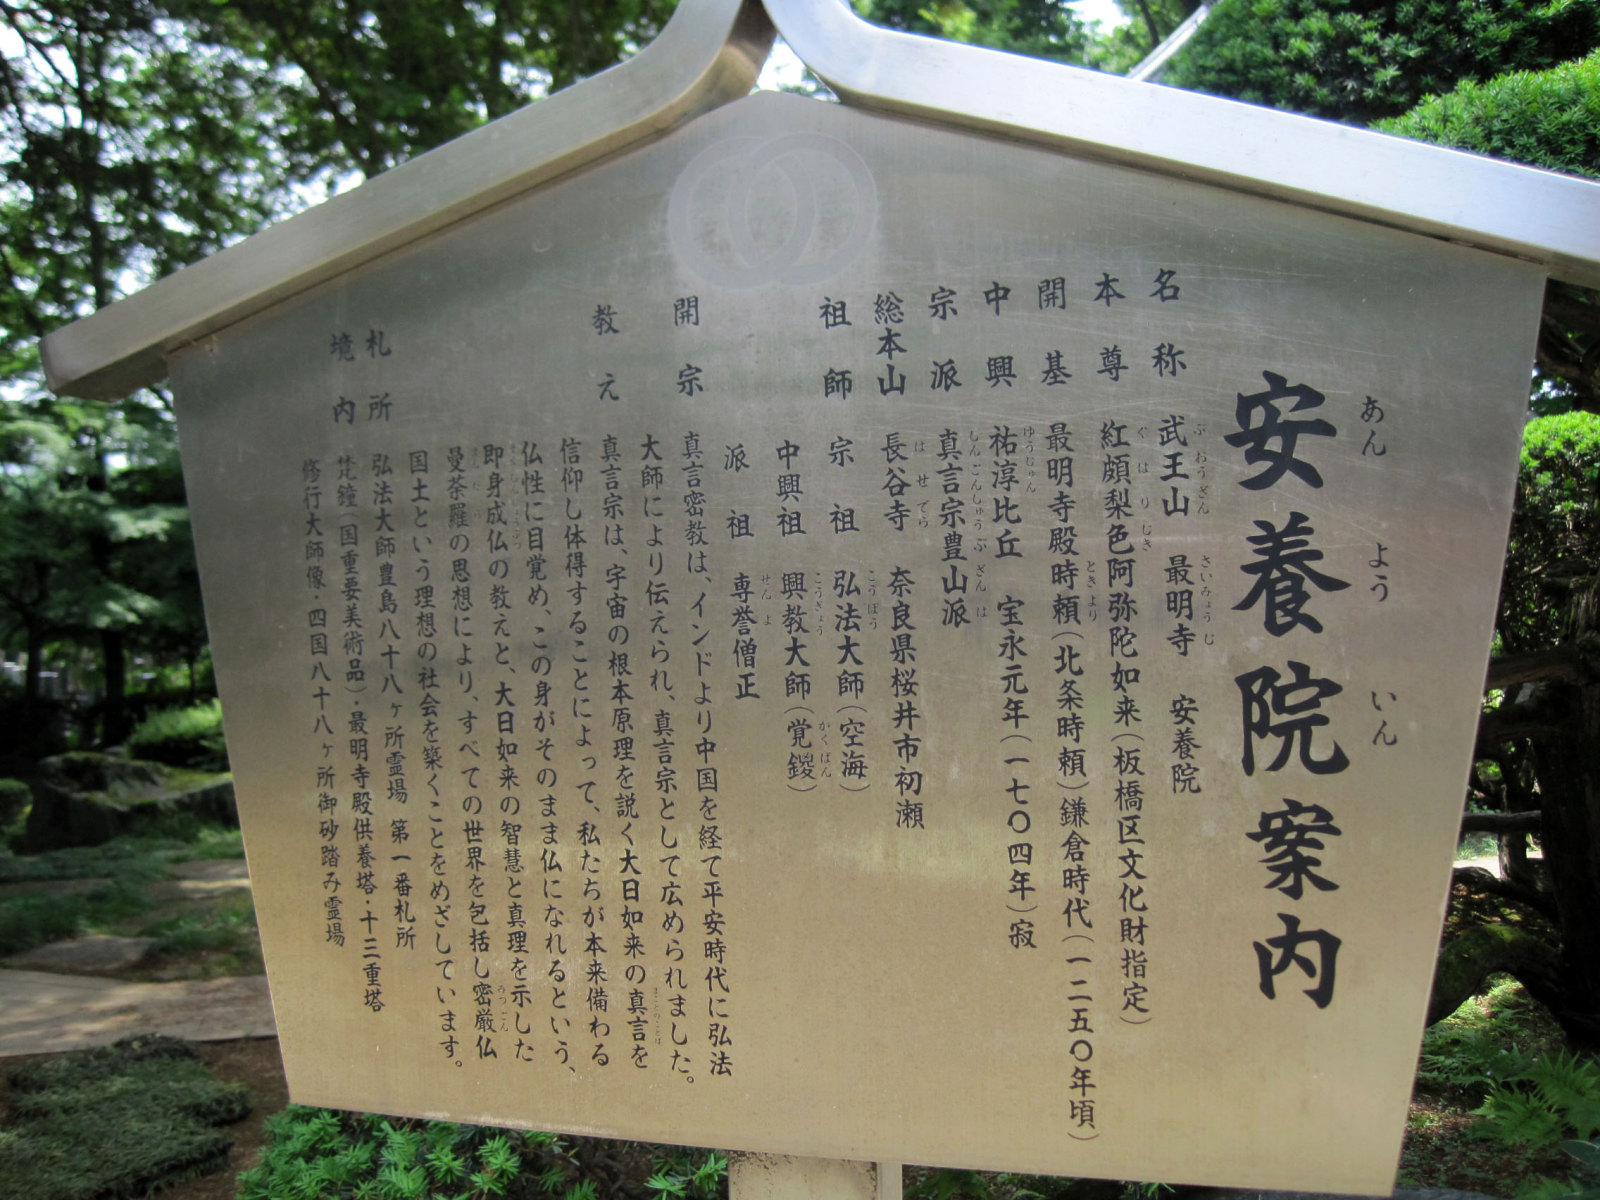 安養院案内
あん よう いん
名称 武王山 最明寺 安養院
ぶおうざん さいみょうじ
本尊 紅頗梨色阿弥陀如来(板橋区文化財指定)
ぐはりじき
開基 最明寺殿時頼(北条時頼)鎌倉時代(一二五〇年頃)
ときより
中興 祐淳比丘 宝永元年(一七〇四年)寂
ゆうじゅん
宗派 真言宗豊山派
しんごんしゅうぶざんは
総本山 長谷寺 奈良県桜井市初瀬
はせでら
祖師 宗祖 弘法大師(空海)
こうぼう
中興祖 興教大師(覚鑁)
こうぎょう かくばん
派祖 専誉僧正
せんよ
開宗 真言密教は、インドより中国を経て平安時代に弘法
大師により伝えられ、真言宗として広められました。
教え 真言宗は、宇宙の根本原理を説く大日如来の真言を
まことのことば
信仰し体得することによって、私たちが本来備わる
仏性に目覚め、この身がそのまま仏になれるという、
即身成仏の教えと、大日如来の智慧と真理を示した
曼荼羅の思想により、すべての世界を包括し密厳仏
まんだら みつごん
国土という理想の社会を築くことをめざしています。
札所 弘法大師豊島八十八ヶ所霊場 第一番札所
境内 梵鐘(国重要美術品)・最明寺殿供養塔・十三重塔
修行大師像・四国八十八ヶ所御砂踏み霊場